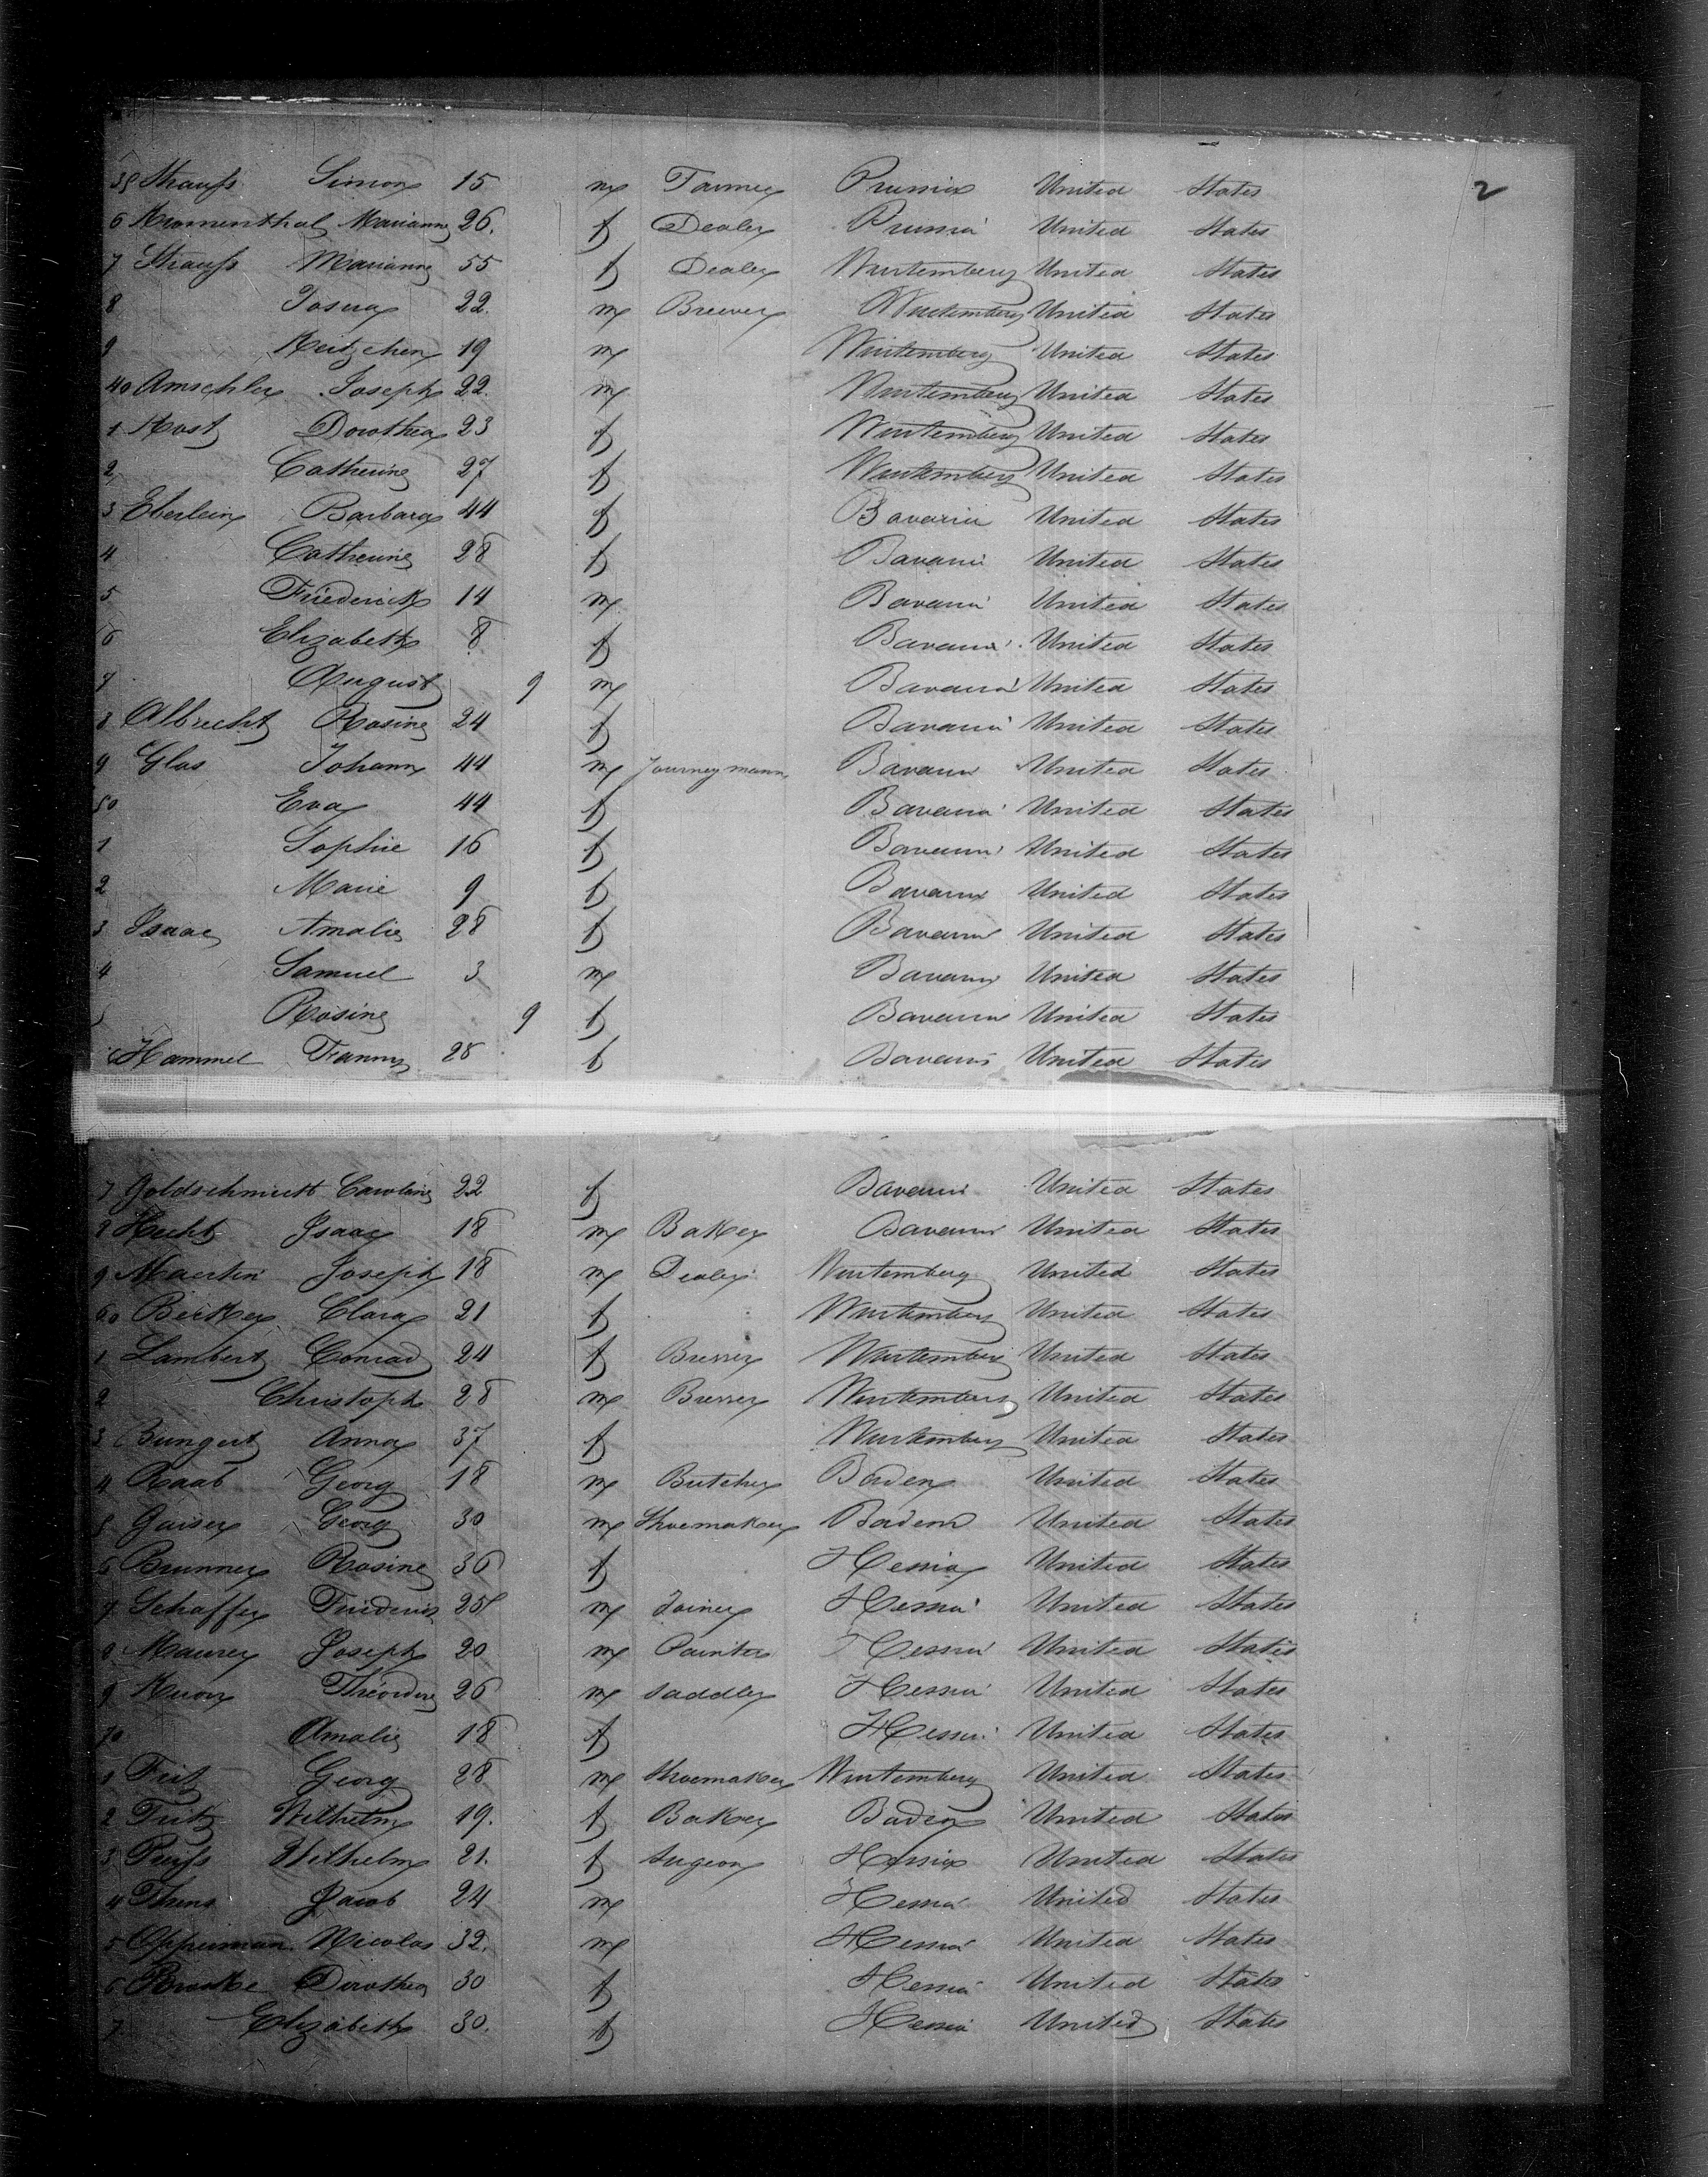 2
35 Strauß Simon 15 m Tanner Prussia United States
6 Kromenthal Marianne 26. f Dealer Prussia United States
7 Strauß Marianne 55 f Dealer Wurtemberg United States
8 Josua 22. m Brewer Wurtemberg United States
9 Keitzchen 19 m Wurtemberg United States
40 Amschler Joseph 22. m Wurtemberg United States
1 Kost Dorothea 23 f Wurtemberg United States
2 Catherine 27 f Wurtemberg United States
3 Eberlein Barbara 44 f Bavaria United States
4 Catherine 28 f Bavaria United States
5 Friederick 14 m Bavaria United States
6 Elizabeth 8 f Bavaria United States
7 August 9 m Bavaria United States
8 Albrecht Rosine 24 f Bavaria United States
9 Glas Johann 44 m Journeymann Bavaria United States
50 Eva 44 f Bavaria United States
1 Sophie 16 f Bavaria United States
2 Marie 9 f Bavaria United States
3 Isaac Amalie 28 f Bavaria United States
4 Samuel 3 m Bavaria United States
5 Rosine 9 f Bavaria United States
Hammel Fanny 28 f Bavaria United States
7 Goldschmidt Caroline 22 f Bavaria United States
8 Hecht Isaac 18 m Baker Bavaria United States
9 Maerlin Joseph 18 m Dealer Wurtemberg United States
60 Becker Clara 21 f Wurtemberg United States
1 Lambert Conrad 24 f Brewer Wurtemberg United States
2 Christoph 28 m Brewer Wurtemberg United States
3 Bungert Anna 37 f Wurtemberg United States
4 Raab Georg 18 m Butcher Baden United States
5 Gaiser Georg 30 m Shoemaker Baden United States
6 Brunner Rosine 36 f Hessia United States
7 Schaffer Friederick 25 m Joiner Hessia United States
8 Maurer Joseph 20 m Painter Hessia United States
9 Theodor 26 m Saddler Hessia United States
70 Amalie 18 f Hessia United States
1 Fritz Georg 28 m Shoemaker Wurtemberg United States
2 Fritz Wilhelm 19. f Baker Baden United States
3 Wilhelm 21. f Surgeon Hessia United States
4 Jacob 24 m Hessia United States
5 Opperman Nicolas 32. m Hessia United States
6 Dorothea 30 f Hessia United States
7 Elizabeth 30. f Hessia United States